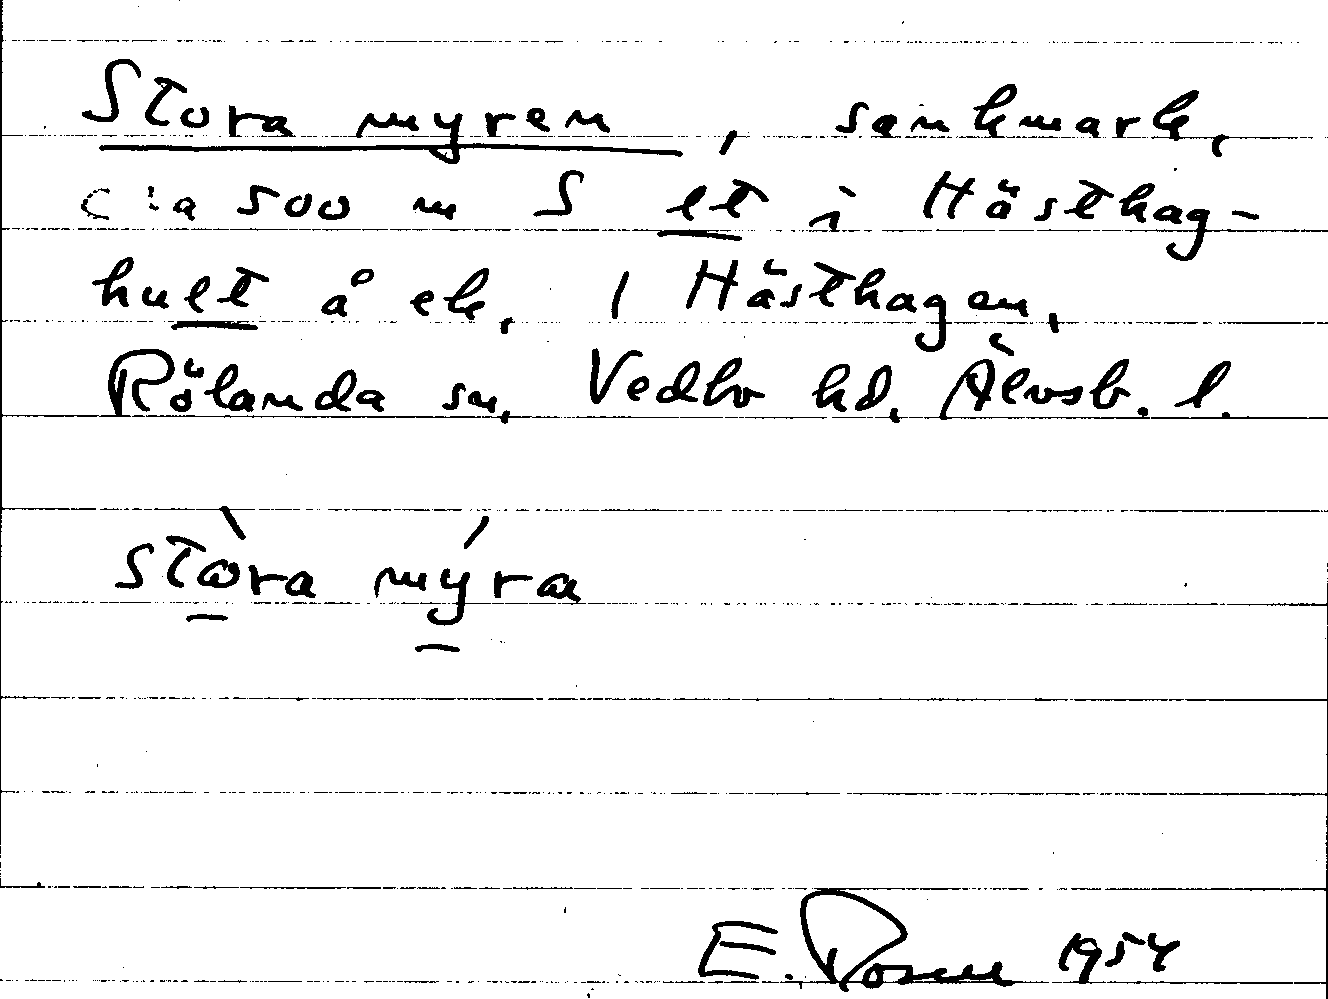 Stora myren, sankmark,
c:a 500 m S et i Hästhag-
huet å ek. 1 Hästhagen,
Rölanda sn, Vedbo hd. Älvsb. l.
stòra mýra
E. Rosen 1954